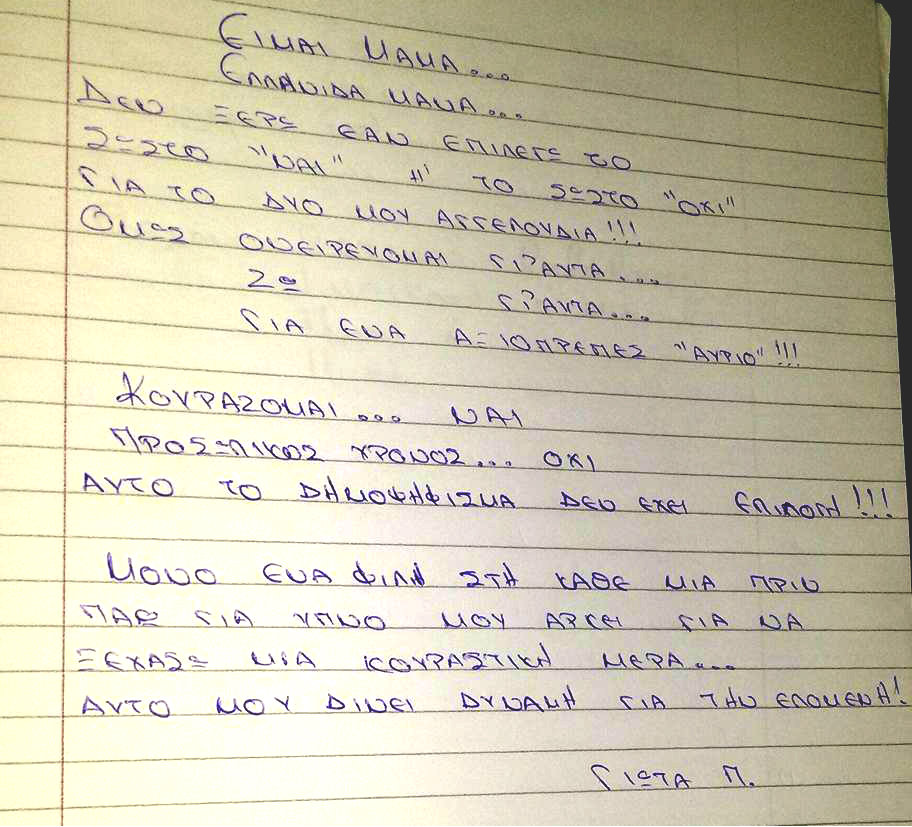 ΕΙΜΑΙ ΜΑΜΑ...
ΕΛΛΗΝΙΔΑ ΜΑΜΑ...
ΔΕΝ ΞΕΡΩ ΕΑΝ ΕΠΙΛΕΓΩ ΤΟ
ΣΩΣΤΟ "ΝΑΙ" Η' ΤΟ ΣΩΣΤΟ "ΟΧΙ"
ΓΙΑ ΤΟ ΔΥΟ ΜΟΥ ΑΓΓΕΛΟΥΔΙΑ!!!
ΟΜΩΣ ΟΝΕΙΡΕΥΟΜΑΙ ΓΙ'ΑΥΤΑ...
ΖΩ Γ'ΑΥΤΑ...
ΓΙΑ ΕΝΑ ΑΞΙΟΠΡΕΠΕΣ "ΑΥΡΙΟ"!!!
ΚΟΥΡΑΖΟΜΑΙ... ΝΑΙ
ΠΡΟΣΩΠΙΚΟΣ ΧΡΟΝΟΣ... ΟΧΙ
ΑΥΤΟ ΤΟ ΔΗΜΟΨΗΦΙΣΜΑ ΔΕΝ ΕΧΕΙ ΕΠΙΛΟΓΗ!!!
ΜΟΝΟ ΕΝΑ ΦΙΛΗ ΣΤΗ ΚΑΘΕ ΜΙΑ ΠΡΙΝ
ΠΑΩ ΓΙΑ ΥΠΝΟ ΜΟΥ ΑΡΚΕΙ ΓΙΑ ΝΑ
ΞΕΧΑΣΩ ΜΙΑ ΚΟΥΡΑΣΤΙΚΗ ΜΕΡΑ...
ΑΥΤΟ ΜΟΥ ΔΙΝΕΙ ΔΥΝΑΜΗ ΓΙΑ ΤΗΝ ΕΠΟΜΕΝΗ!
ΓΙΩΤΑ Π.